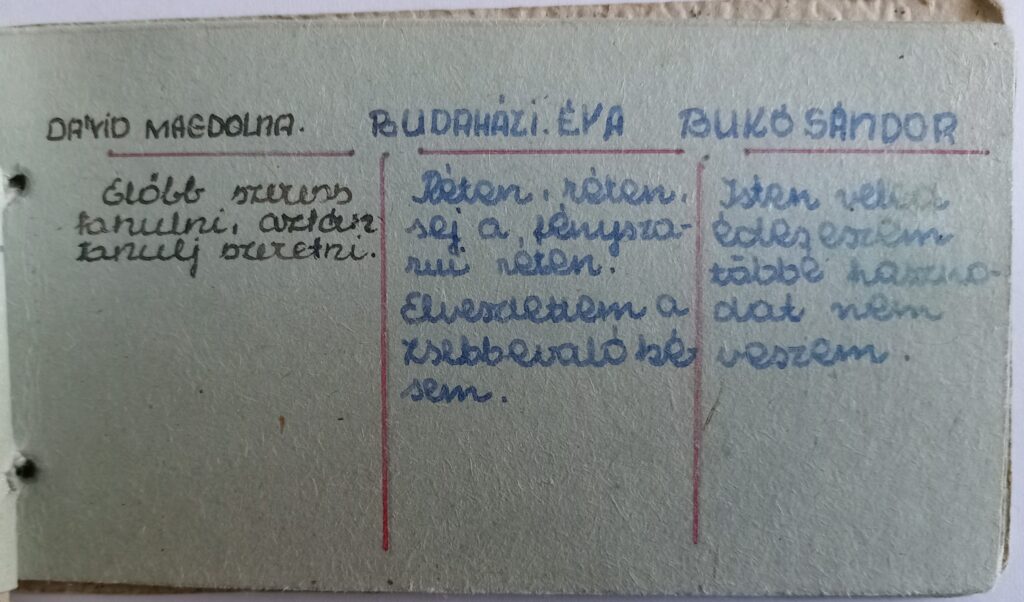 DÁVID MAGDOLNA.
Előbb szeress
tanulni, aztán
tanulj szeretni.
BUDAHÁZI. ÉVA
Réten, réten,
sej a, fénysza-
rui réten.
Elvesztettem a
zsebbevaló ké
sem.
BUKÓ SÁNDOR
Isten veled
édes eszem
többé haszna-
dat nem
veszem.